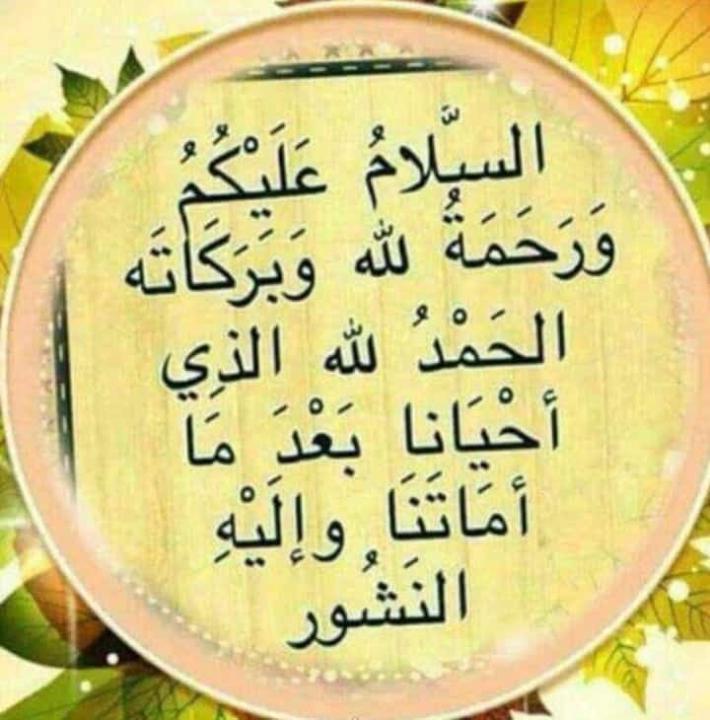 السَّلامُ عَلَيْكُمُ
وَرَحَمَةُ لله وَبَرَكَاتَه
الحَمْدُ لله الذِي
أحْيَانا بَعْدَ مَا
أمَاتَنَا وإلَيْهِ
النَشُور